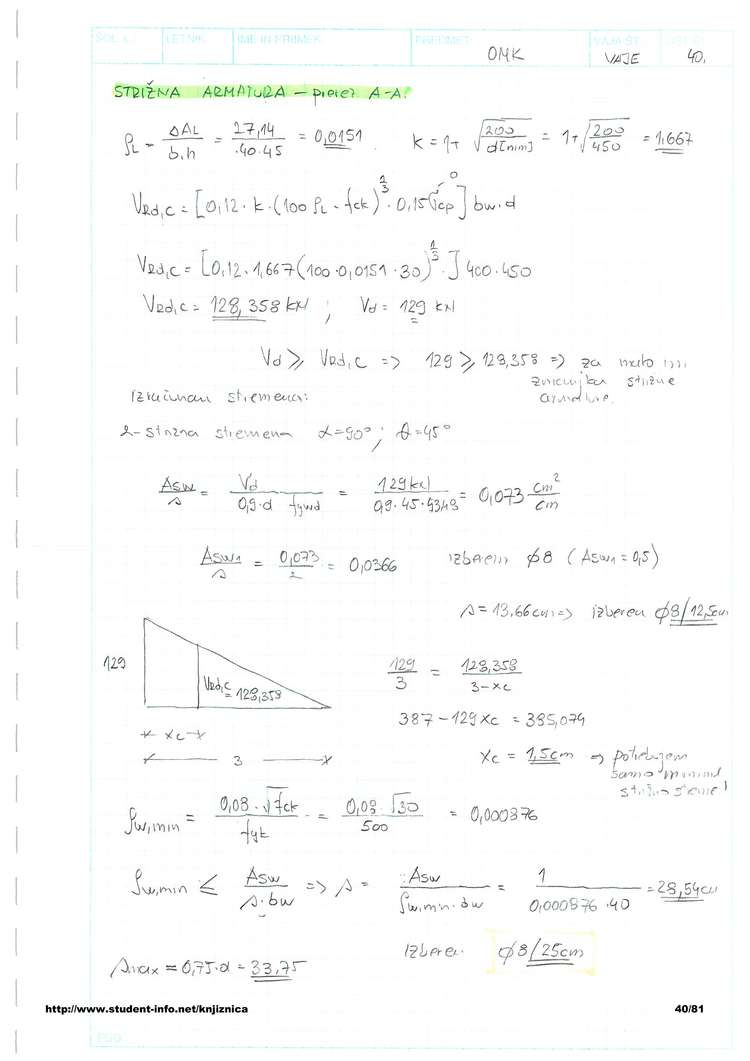 ŠOL. L. LETNIK IME IN PRIIMEK PREDMET VAJA ŠT. LIST ŠT.
OMK VAJE 40.
STRIŽNA ARMATURA – prerez A-A:
ρL = ΔAL / b.h = 27,14 / .40.45 = 0,0151 k = 1+ √(200 / d[mm]) = 1+√(200 / 450) = 1,667
VRd,c = [0,12 · k · (100 ρL · fck)^1/3 · 0,15 σcp] bw.d
0
VRd,c = [0,12 · 1,667 (100 · 0,0151 · 30)^1/3 · ] 400 · 450
VRd,c = 128,358 kN ; Vd = 129 kN
Vd ≥ VRd,c => 129 ≥ 128,358 => za malo
strižne
armature.
Izračunam stremena:
2-strižna stremena α=90° ; θ=45°
Asw / s = Vd / 0,9·d fywd = 129 kN / 0,9·45·43,48 = 0,073 cm² / cm
Asw1 / s = 0,073 / 2 = 0,0366 izberem φ8 (Asw1 = 0,5)
s = 13,66cm => izberem φ8/12,5cm
129
VRd,c = 128,358
xc
3
129 / 3 = 128,358 / 3-xc
387 – 129xc = 385,074
xc = 1,5cm => potrebujem
samo minimal
ρw,min = 0,08 · √fck / fyk = 0,08 · √30 / 500 = 0,000876
ρw,min ≤ Asw / s·bw => s = Asw / ρw,min·bw = 1 / 0,000876 · 40 = 28,54cm
Izberem φ8/25cm
smax = 0,75·d = 33,75
http://www.student-info.net/knjiznica 40/81